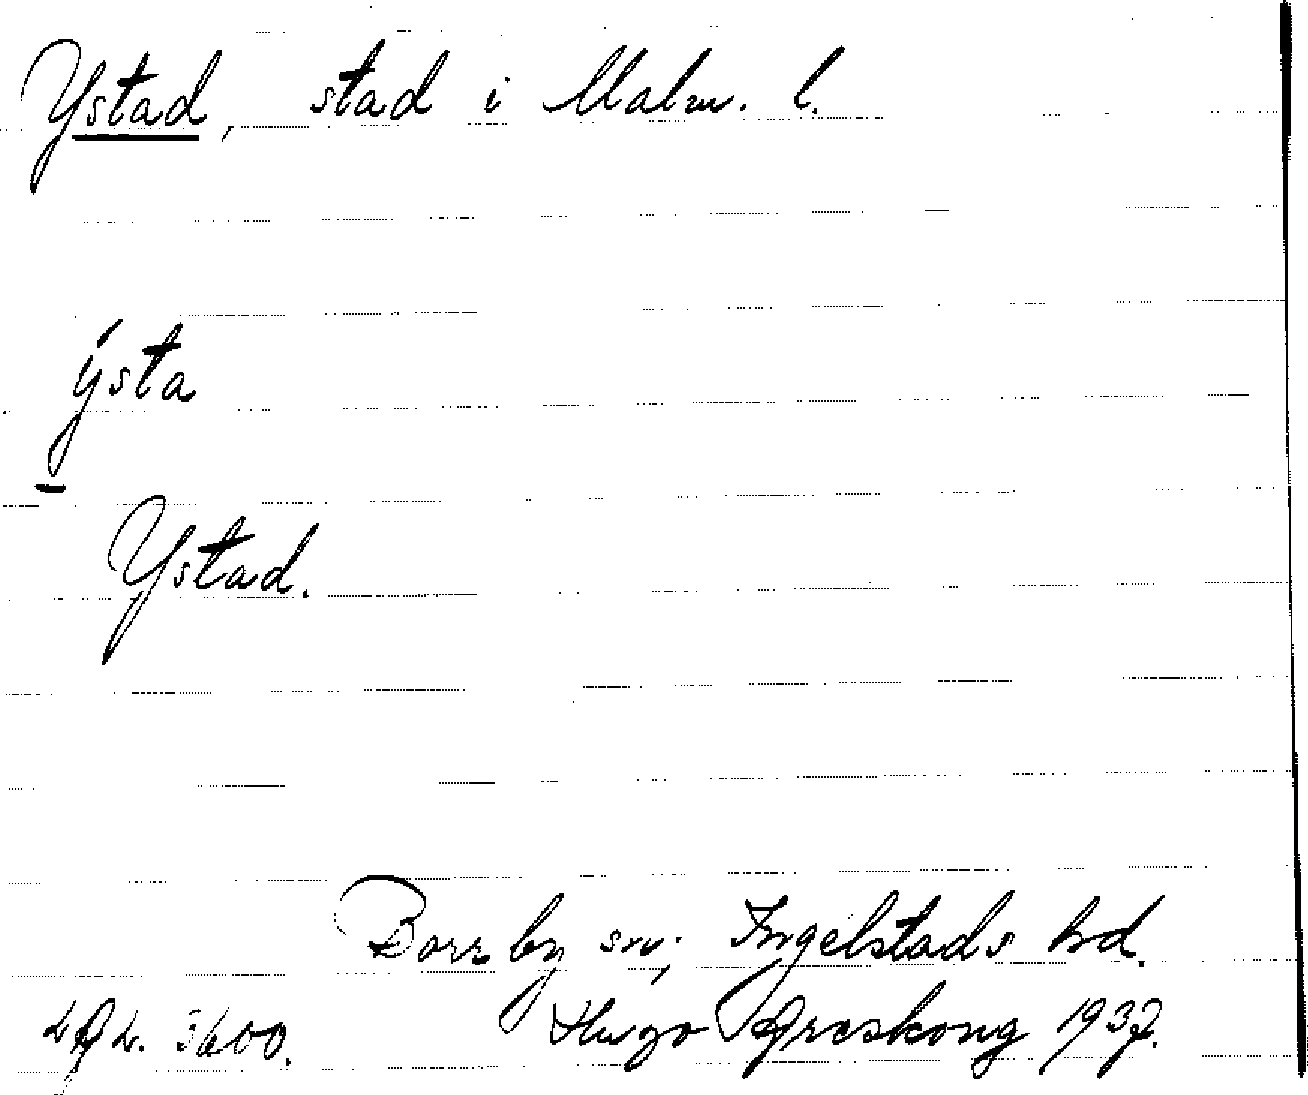 Ystad, stad i Malm. l.
ýsta
Ystad.
Borrby sn; Ingelstads hd.
Hugo Areskoug 1937.